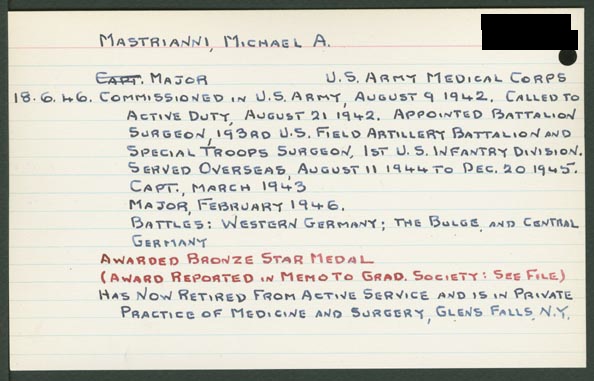 MASTRIANNI, MICHAEL A.
CAPT. MAJOR U.S. ARMY MEDICAL CORPS
18.6.46. COMMISSIONED IN U.S. ARMY, AUGUST 9 1942. CALLED TO
ACTIVE DUTY, AUGUST 21 1942. APPOINTED BATTALION
SURGEON, 193RD U.S. FIELD ARTILLERY BATTALION AND
SPECIAL TROOPS SURGEON, 1ST U.S. INFANTRY DIVISION.
SERVED OVERSEAS, AUGUST 11 1944 TO DEC. 20 1945.
CAPT., MARCH 1943
MAJOR, FEBRUARY 1946.
BATTLES: WESTERN GERMANY; THE BULGE, AND CENTRAL
GERMANY
AWARDED BRONZE STAR MEDAL
(AWARD REPORTED IN MEMO TO GRAD. SOCIETY: SEE FILE)
HAS NOW RETIRED FROM ACTIVE SERVICE AND IS IN PRIVATE
PRACTICE OF MEDICINE AND SURGERY, GLENS FALLS, N.Y.